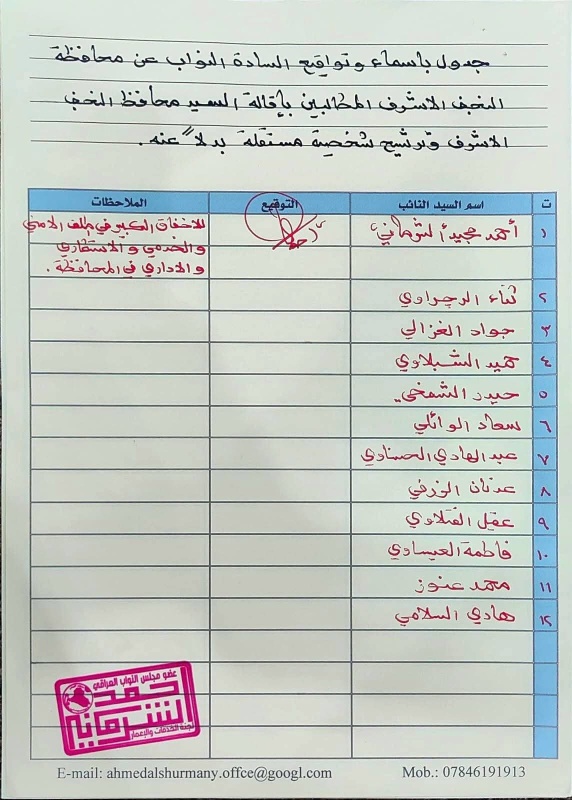 جدول بأسماء وتواقيع السادة النواب عن محافظة
النجف الاشرف المطالبين بإقالة السيد محافظ النجف
الاشرف وترشيح شخصية مستقلة بدلاً عنه .
ت اسم السيد النائب التوقيع الملاحظات
١ أحمد مجيد الشرماني للاخفاق الكبير في الملف الامني
والخدمي والاستثماري
والاداري في المحافظة .
٢ ثناء الزجراوي
٣ جواد الغزالي
٤ حميد الشبلاوي
٥ حيدر الشمخي
٦ سعاد الوائلي
٧ عبد الهادي الحسناوي
٨ عدنان الزرفي
٩ عقيل الفتلاوي
١٠ فاطمة العيساوي
١١ محمد عنوز
١٢ هادي السلامي
عضو مجلس النواب العراقي
أحمد
الشرماني
لجنة الخدمات والإعمار
E-mail: ahmedalshurmany.offce@googl.com Mob.: 07846191913